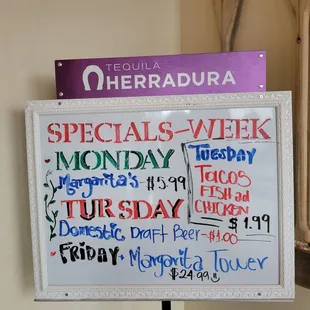 TEQUILA
HERRADURA
SPECIALS-WEEK
MONDAY
Margarita's -$5.99
TUESDAY
Tacos
FISH ad
CHICKEN
$1.99
TURSDAY
Domestic Draft Beer -$1.00
FRIDAY Margarita Tower
$24.99